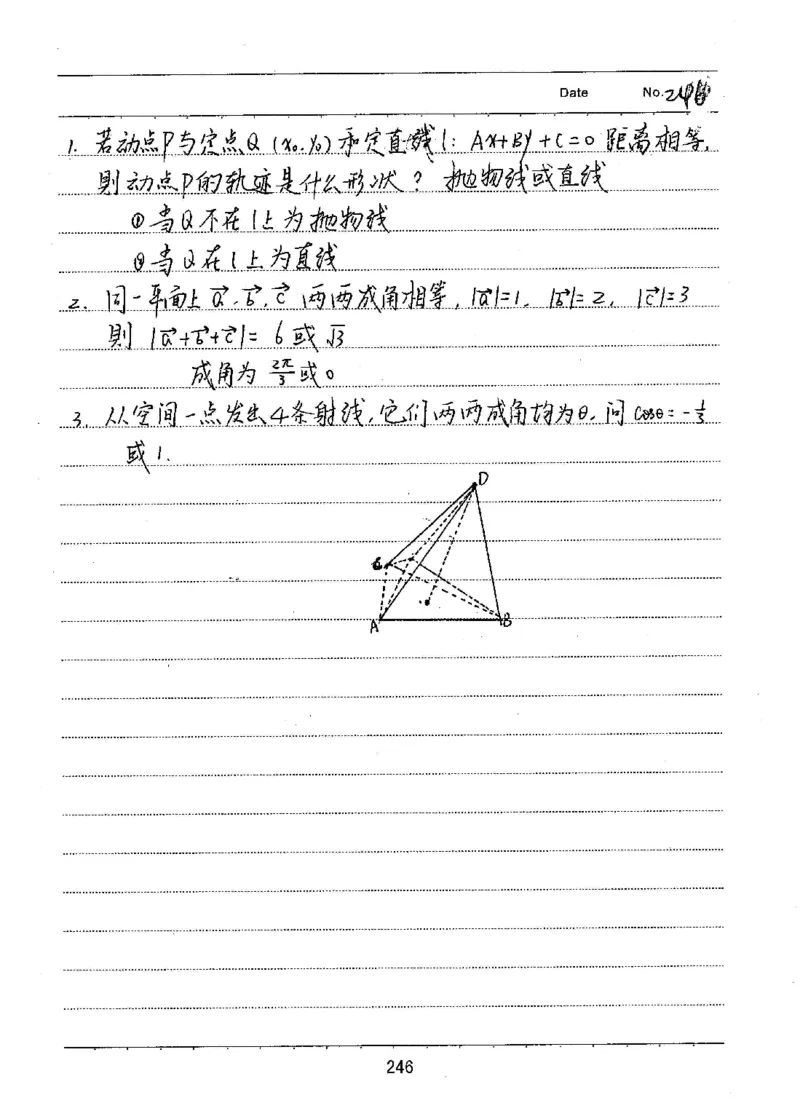 Date No.246
1. 若动点P与定点Q(x₀,y₀)和定直线l: Ax+By+C=0 距离相等,
则动点P的轨迹是什么形状? 抛物线或直线
①当Q不在l上为抛物线
②当Q在l上为直线
2. 同一平面上 a⃗, b⃗, c⃗ 两两成角相等, |a⃗|=1, |b⃗|=2, |c⃗|=3
则 |a⃗+b⃗+c⃗|= 6 或 √3
成角为 2π/3 或 0
3. 从空间一点发出4条射线, 它们两两成角均为θ, 问 cosθ = -1/3
或 1.
D
C
A B
246